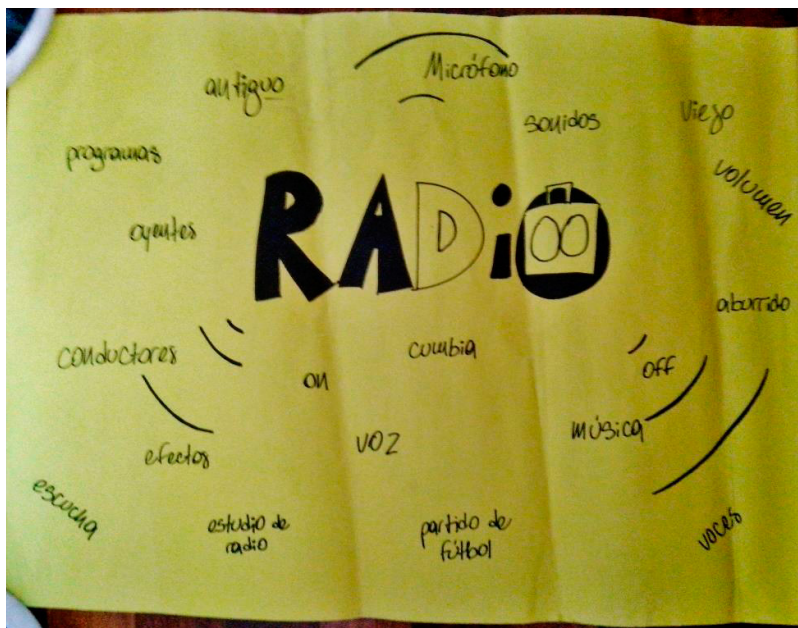 Micrófono
antiguo
sonidos
viejo
programas
volumen
oyentes
RADiO
aburrido
conductores
cumbia
off
on
música
efectos
voz
escucha
estudio de
radio
partido de
fútbol
voces